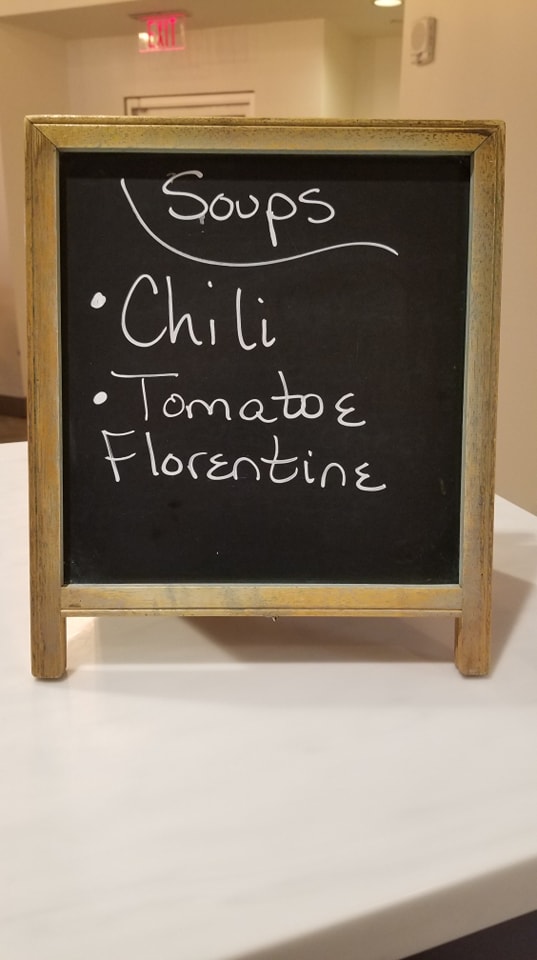 EXIT
Soups
• Chili
• Tomatoe
Florentine